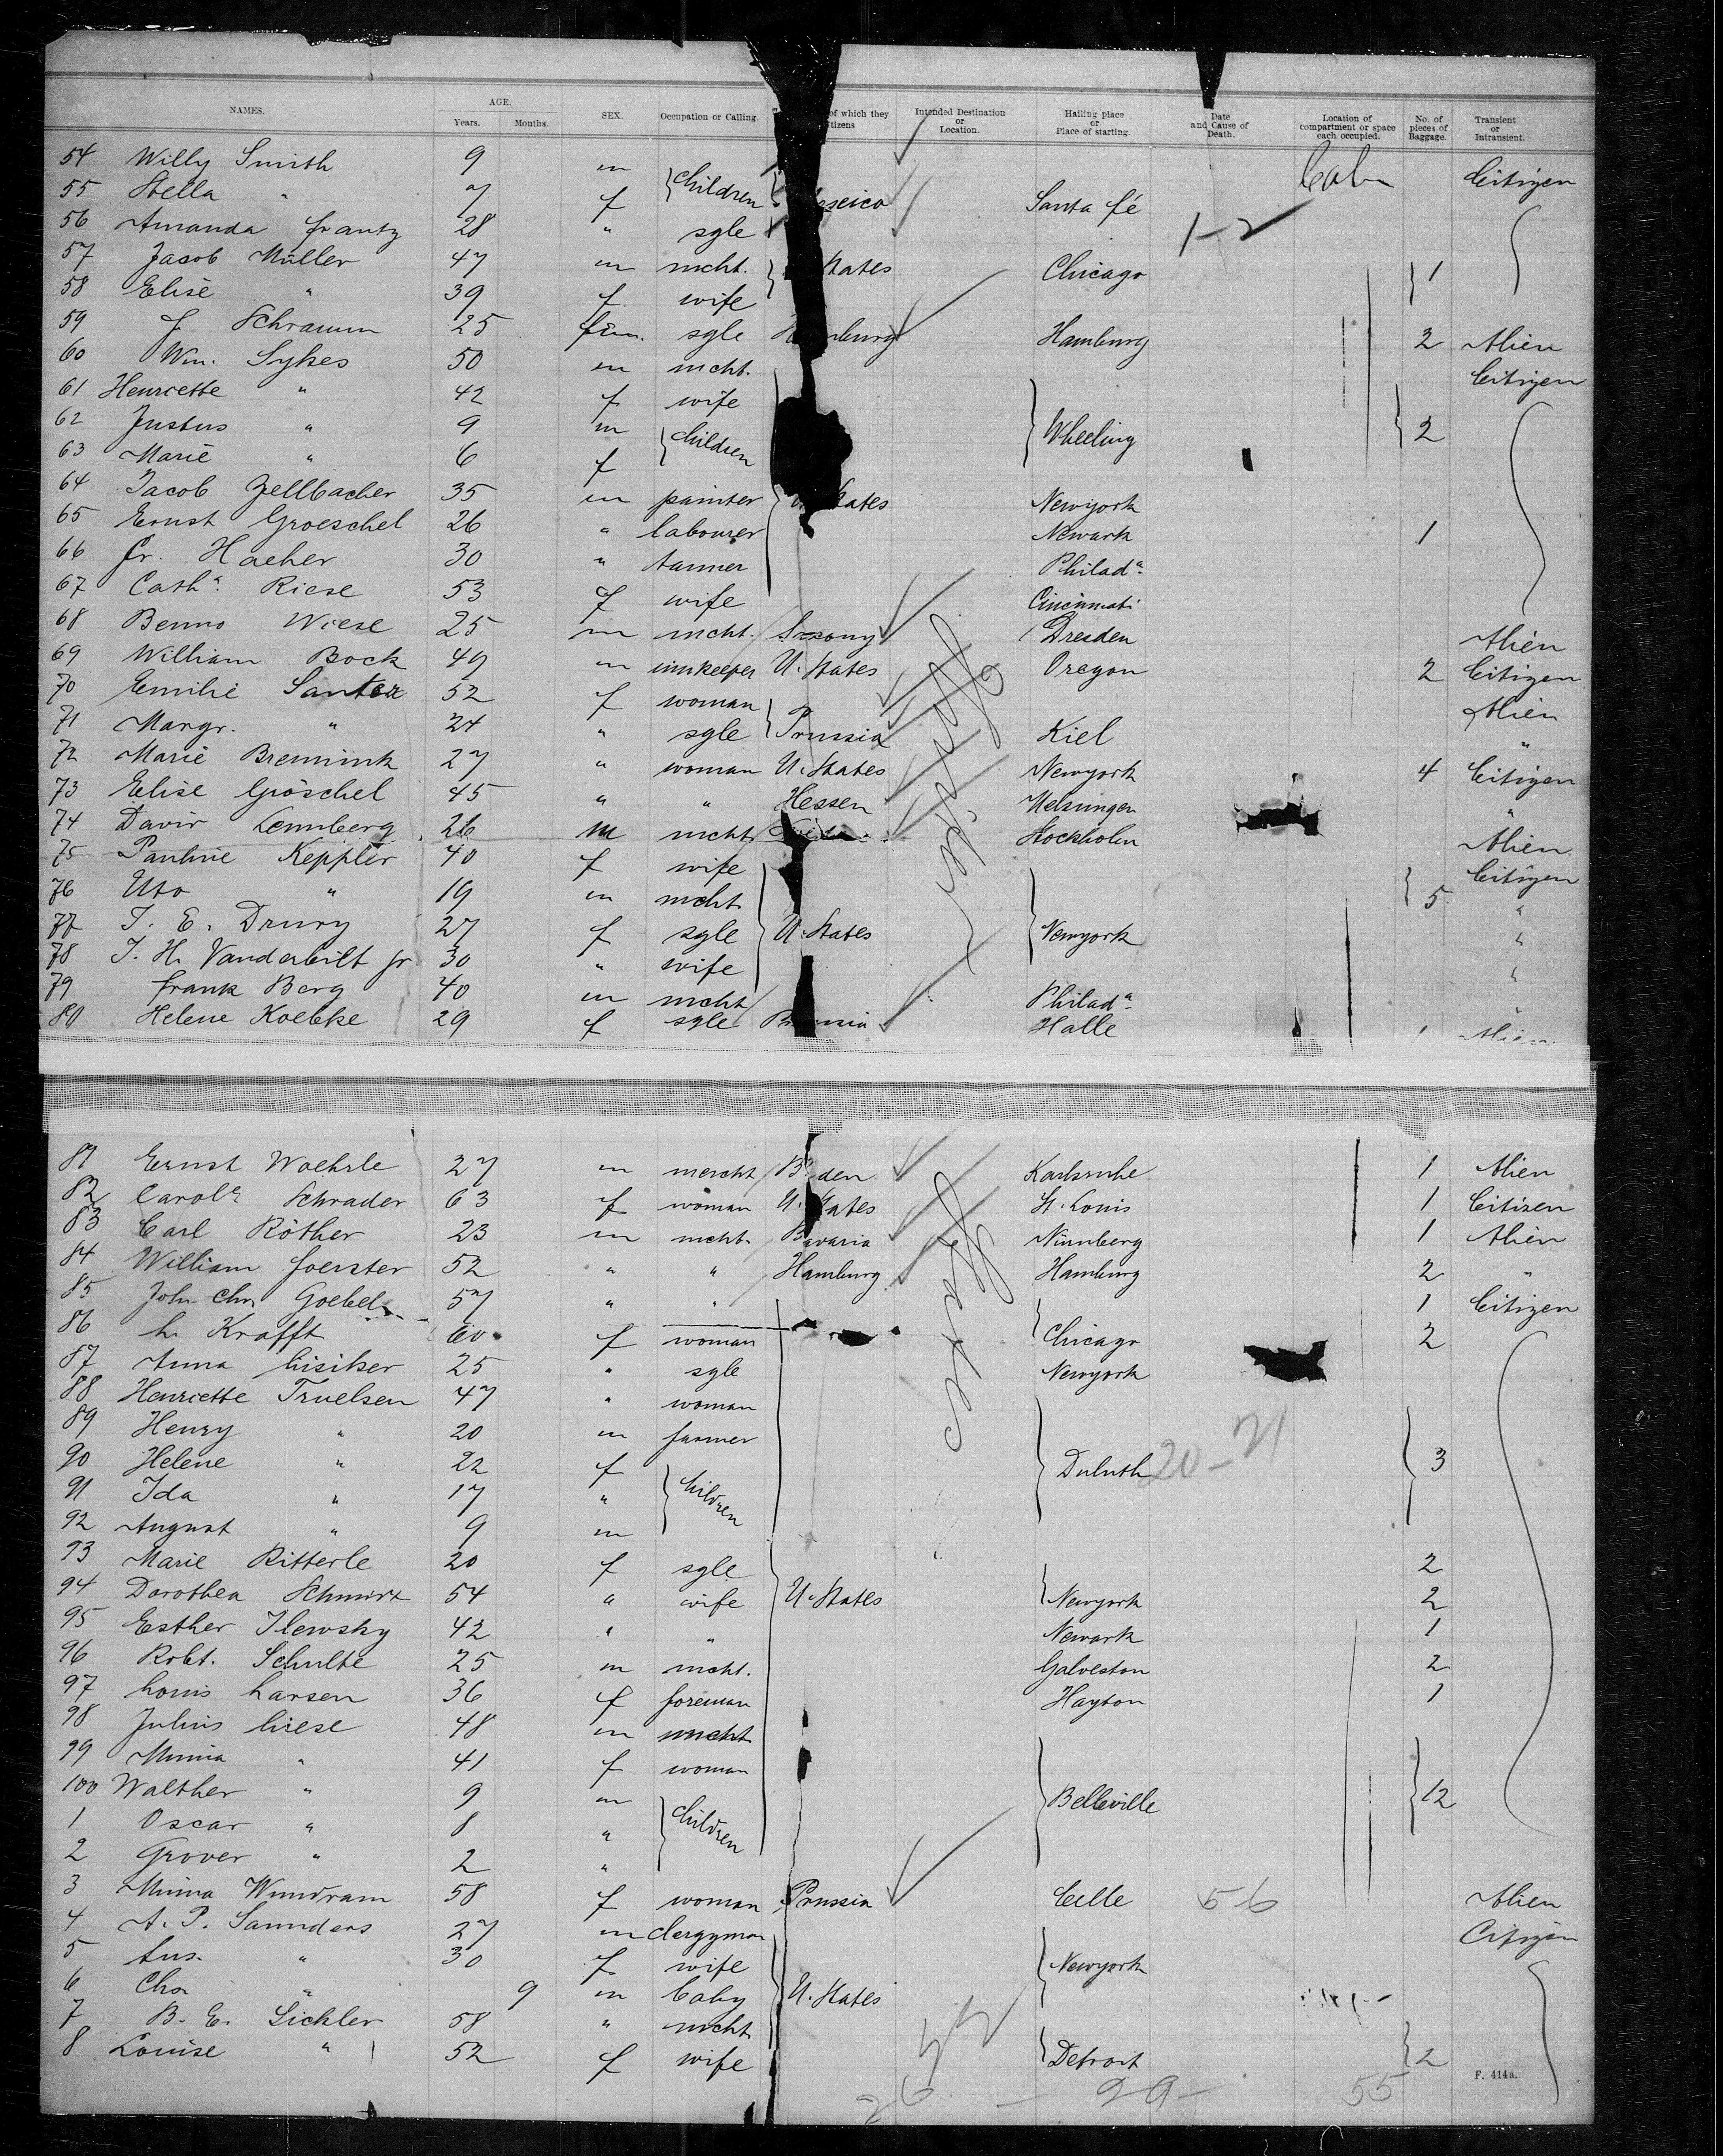 NAMES. AGE. SEX. Occupation or Calling. of which they Intended Destination or Location. Hailing place or Place of starting. Date and Cause of Death. Location of compartment or space each occupied. No. of pieces of Baggage. Transient or Intransient.
Years. Months. tizens
54 Willy Smith 9 m Citizen
55 Stella " 7 f } children Santa fé
56 Amanda frantz 28 " sgle 1-2
57 Jacob Müller 47 m mcht. } States } Chicago } 1
58 Elise " 39 f wife
59 J Schramm 25 fem. sgle Hamburg 2 Alien
60 Wm. Sykes 50 m mcht. Citizen
61 Henriette " 42 f wife
62 Justus " 9 m } children } Wheeling } 2
63 Marie " 6 f
64 Jacob Zellbacher 35 m painter States Newyork
65 Ernst Groeschel 26 " labourer Newark 1
66 fr. Hacher 30 " tanner Philada.
67 Catha. Riese 53 f wife Cincinnati
68 Benno Wiese 25 m mcht. Saxony Dresden Alien
69 William Bock 49 m innkeeper U. States Oregon 2 Citizen
70 Emilie 52 f woman Alien
71 Margr. " 24 " sgle } Prussia Kiel "
72 Marie Brennink 27 " woman U. States Newyork 4 Citizen
73 Elise Gröschel 45 " " Hessen Melsungen "
74 Davir Lennberg 26 m mcht Stockholm Alien
75 Pauline Keppler 40 f wife Citizen
76 Uto " 19 m mcht } 5 "
77 T. E. Drury 27 f sgle } U. States } Newyork "
78 J. H. Vanderbilt jr 30 " wife "
79 frank Berg 40 m mcht Philada. "
80 Helene Koebke 29 f sgle Halle 1 Alien
81 Ernst Woehrle 27 m mercht Baden Karlsruhe 1 Alien
82 Schrader 63 f woman U. States St. Louis 1 Citizen
83 Carl Röther 23 m mcht. Bavaria Nürnberg 1 Alien
84 William foerster 52 " " Hamburg Hamburg 2 "
85 John Chr Goebel 57 " " 1 Citizen
86 L. Krafft 60 f woman } Chicago 2
87 Anna Lisiker 25 " sgle Newyork
88 Henriette Truelsen 47 " woman
89 Henry " 20 m farmer
90 Helene " 22 f } Duluth 20-21 } 3
91 Ida " 17 " } children
92 August " 9 m
93 Marie Ritterle 20 f sgle 2
94 Dorothea 54 " wife } U. States } Newyork 2
95 Esther Ilewsky 42 " " Newark 1
96 Robt. Schulte 25 m mcht. Galveston 2
97 Louis Larsen 36 f foreman Hayton 1
98 Julius Liese 48 m mcht
99 Minna " 41 f woman
100 Walther " 9 m } Belleville } 12
1 Oscar " 8 " } children
2 Grover " 2 "
3 Minna Wundram 58 f woman Prussia Celle 56 Alien
4 A. P. Saunders 27 m clergyman Citizen
5 " 30 f wife } Newyork
6 " 9 m baby } U. States
7 B. E. Sickler 58 " mcht
8 Louise " 52 f wife } Detroit } 2
F. 414a.
26 - 29- 55